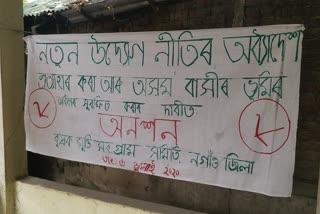 নতুন উদ্যোগ নীতিৰ অধ্যাদেশ
প্ৰত্যাহাৰ কৰা আৰু অসম বাসীৰ ভূমিৰ
অধিকাৰ সুৰক্ষিত কৰাৰ দাবীত
অনশন
কৃষক মুক্তি সংগ্ৰাম সমিতি, নগাঁও জিলা
২০২০